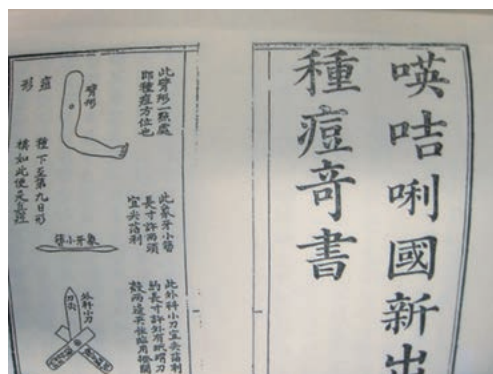 暎咭唎國新出
種痘奇書
此臂形一點處
即種痘方位也
臂形
痘
形
種下至第九日形
模如此便是真痘
此象牙小簪
長寸許兩頭
宜尖薄利
象牙小簪
此外科小刀宜尖薄利
約長寸許外有玳瑁刀
殼兩邊夾住臨用撥開
外科小刀
刀尖